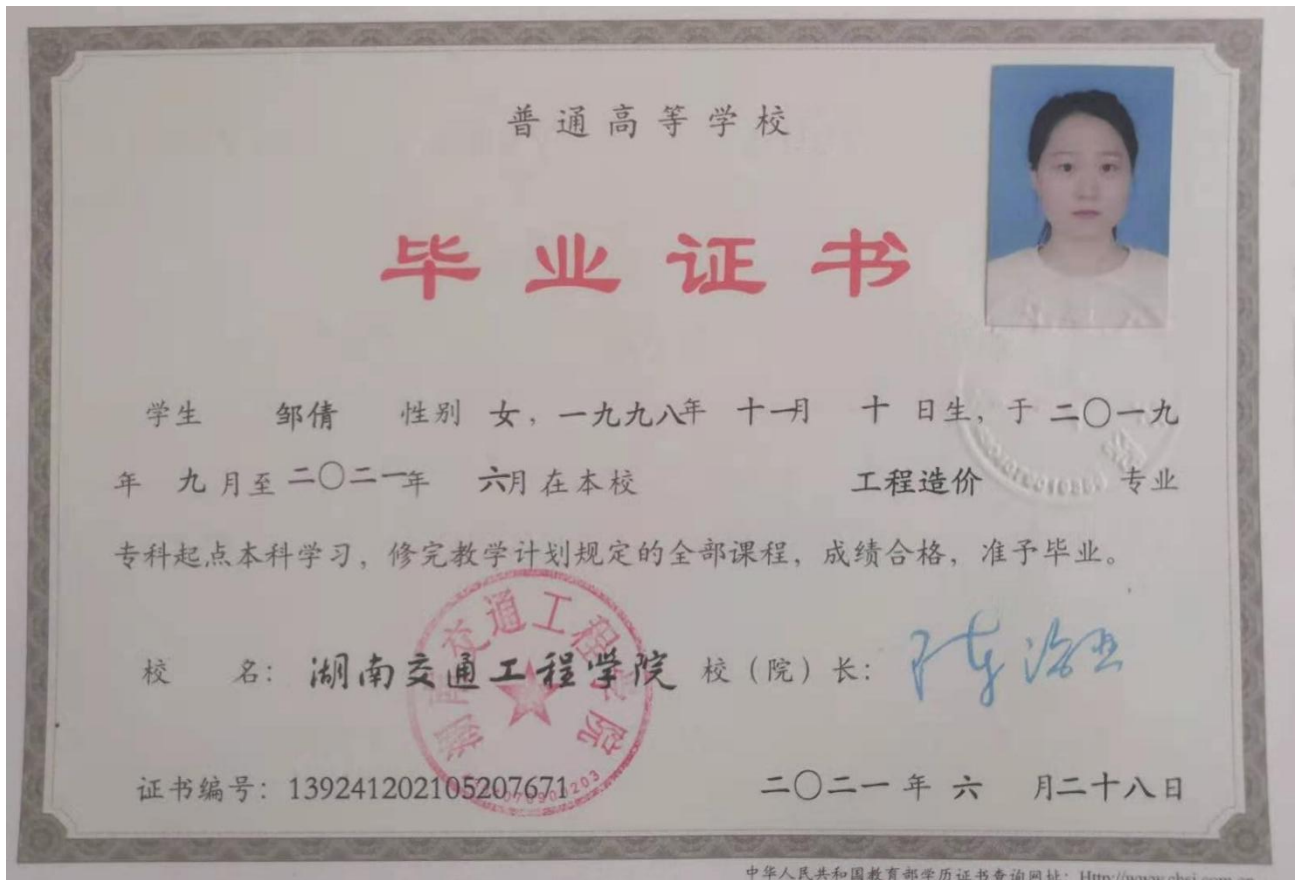 普通高等学校
毕业证书
学生 邹倩 性别 女，一九九八年 十一月 十 日生，于 二〇一九
年 九月至 二〇二一年 六月在本校 工程造价 专业
专科起点本科学习，修完教学计划规定的全部课程，成绩合格，准予毕业。
校 名：湖南交通工程学院 校（院）长：
湖南交通工程学院
证书编号：139241202105207671 二〇二一年 六 月二十八日
中华人民共和国教育部学历证书查询网址：Http://www.chsi.com.cn